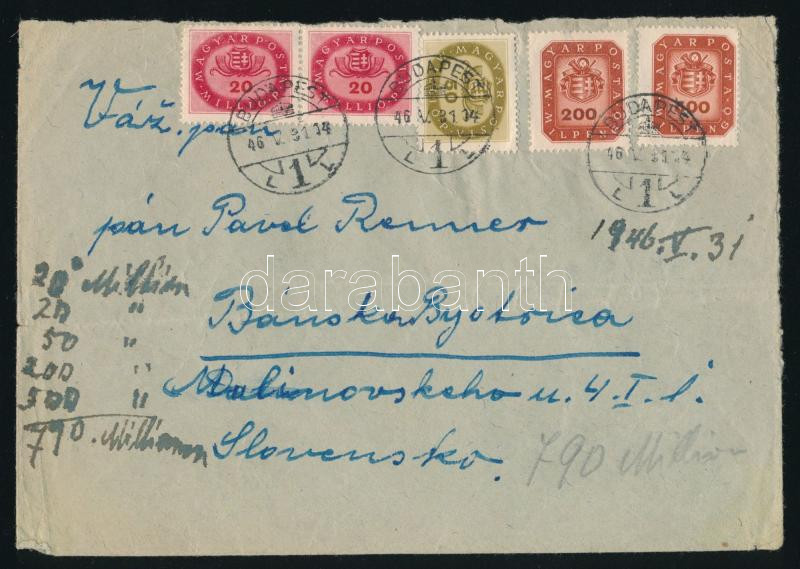 MAGYAR POSTA
20
MILLIÓ P
MAGYAR POSTA
20
MILLIÓ P
MAGYAR POSTA
50
MAGYAR POSTA
200
MILPENGŐ
MAGYAR POSTA
500
MILPENGŐ
BUDAPEST
46 V. 31 14
1
BUDAPEST
46 V. 31 14
1
BUDAPEST
46 V. 31 14
1
Váž. pán
pán Pavel Renner
1946.V.31
Bánska Bystrica
Malinovskeho u. 4. I. p.
Slovensko.
20 Million
20 "
50 "
200 "
500 "
790. Millionen
790 Million
darabanth